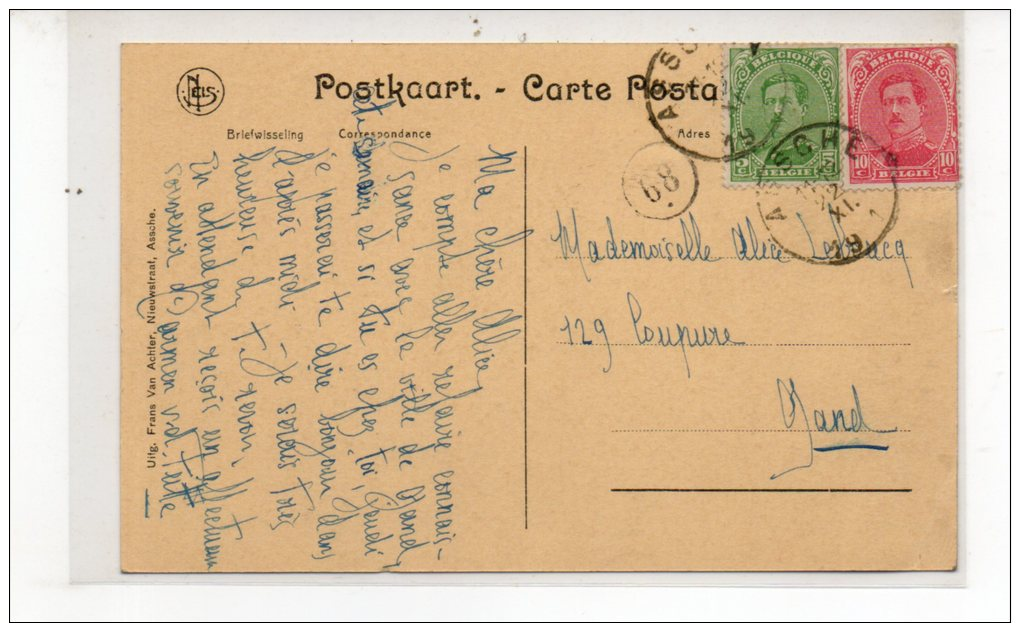 NELS
Postkaart. - Carte Posta
Briefwisseling Correspondance Adres
BELGIQUE
5 c 5 c
BELGIË
BELGIQUE
10 c 10 c
BELGIE
ASSCHE
ASSCHE
12
XI.
19
68
Ma chère Alice,
Je compte aller refaire connais-
sance avec la ville de Gand
cette semaine, et si tu es chez toi, jeudi
je passerai te dire bonjour dans
d'après midi. Je serais très
heureuse de te revoir,
En attendant reçois un affectueux
souvenir de Carmen
Mademoiselle Alice
129 Coupure
Gand
Uitg. Frans Van Achter, Nieuwstraat, Assche.